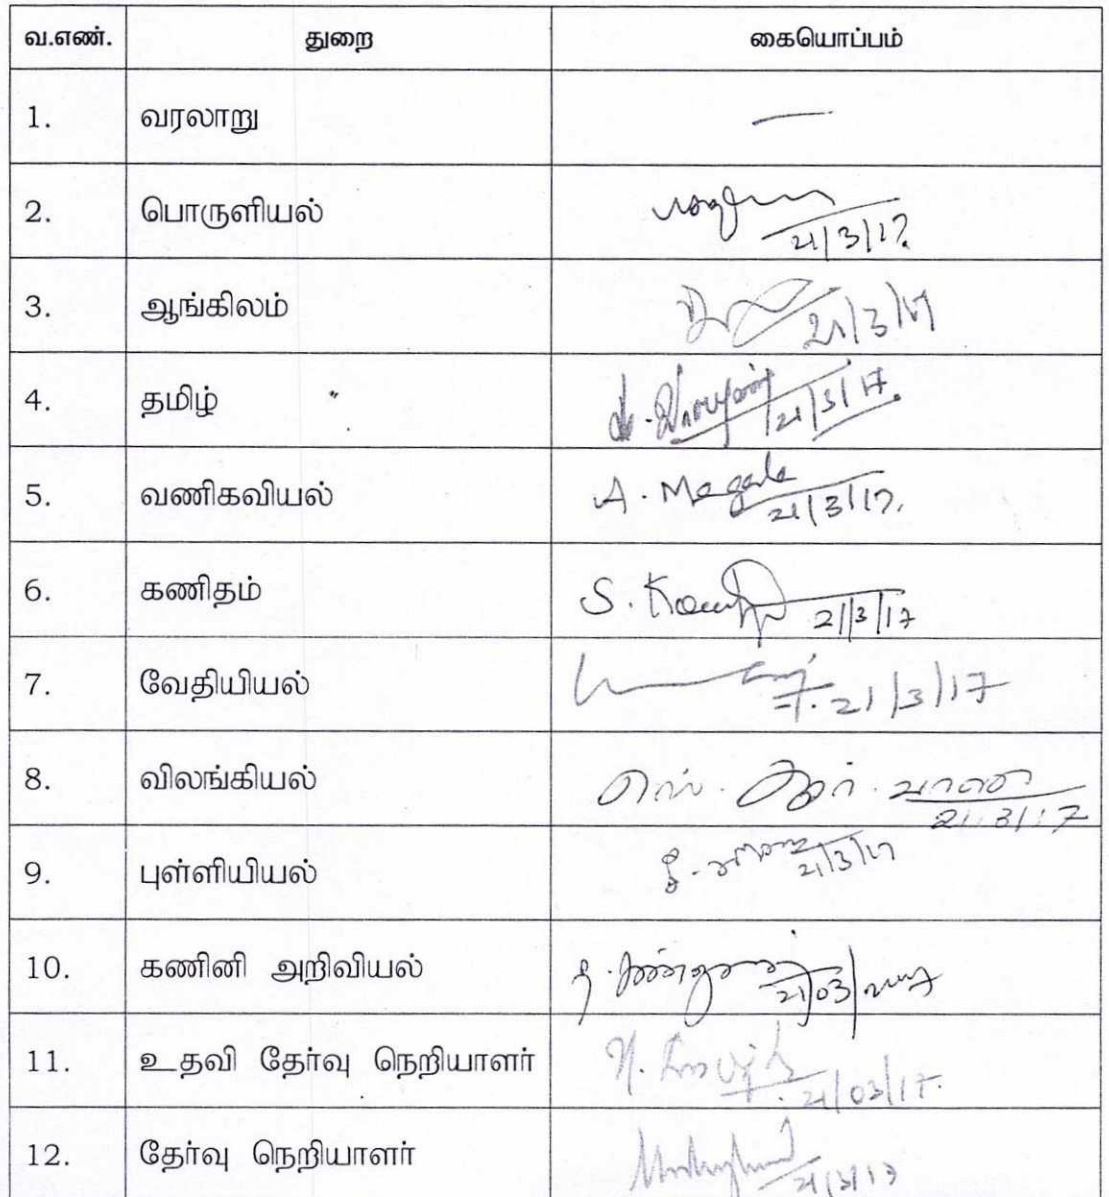 வ.எண். துறை கையொப்பம்
1. வரலாறு —
2. பொருளியல்
21/3/17.
3. ஆங்கிலம் 21/3/17
4. தமிழ் 21/3/17.
5. வணிகவியல் A. Megala
21/3/17.
6. கணிதம் S. 21/3/17
7. வேதியியல் 21/3/17
8. விலங்கியல் எஸ். ஆர். வாணி
21/3/17
9. புள்ளியியல் 21/3/17
10. கணினி அறிவியல் 21/03/2017
11. உதவி தேர்வு நெறியாளர்
21/03/17.
12. தேர்வு நெறியாளர் 21/3/17